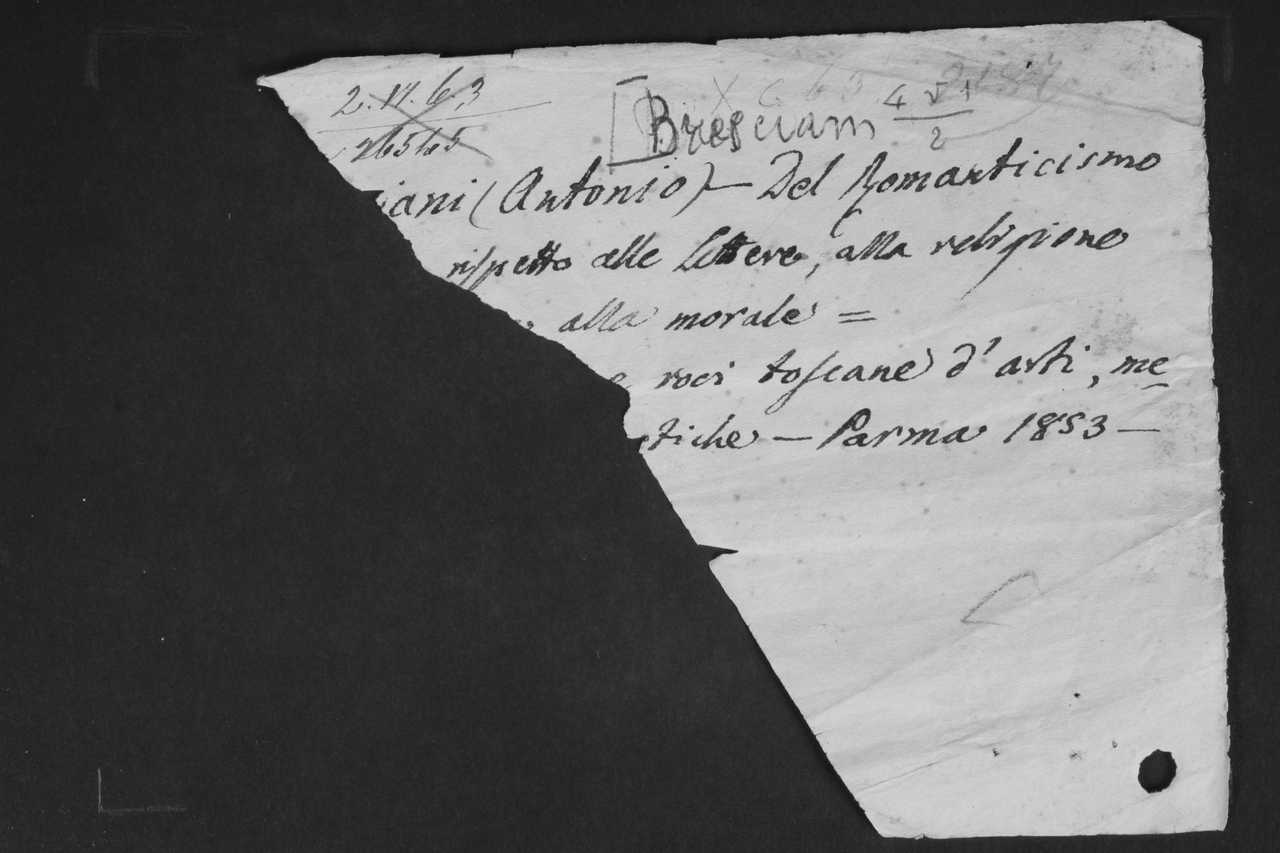 2.17.6.3
26565
[Bresciani
4 V 1
2
iani (Antonio) — Del Romanticismo
rispetto alle lettere, alla religione
alla morale =
e voci toscane d'arti, me
stiche — Parma 1853 —